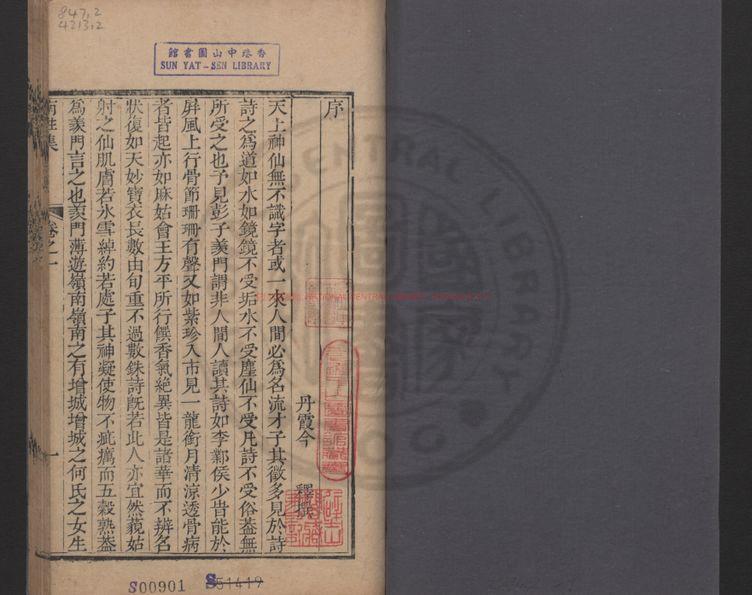 847.2
4213.2
香港中山圖書館
SUN YAT-SEN LIBRARY
序
丹霞今釋撰
天上神仙無不識字者或一來人間必爲名流才子其徵多見於詩
詩之爲道如水如鏡鏡不受垢水不受塵仙不受凡詩不受俗葢無
所受之也予見彭子羨門謂非人間人讀其詩如李鄴侯少時能於
屛風上行骨節珊珊有聲又如紫珍入市見一龍銜月清涼透骨病
者皆起亦如麻姑會王方平所行饌香氣絶異皆是諸華而不辨名
狀復如天妙寶衣長數由旬重不過數銖詩旣若此人亦宜然藐姑
射之仙肌膚若氷雪綽約若處子其神凝使物不疵癘而五穀熟葢
爲羨門言之也羨門薄遊嶺南嶺南之有增城增城之何氏之女生
集
卷之一
一
S00901
S51419
CENTRAL LIBRARY
NATIONAL CENTRAL LIBRARY